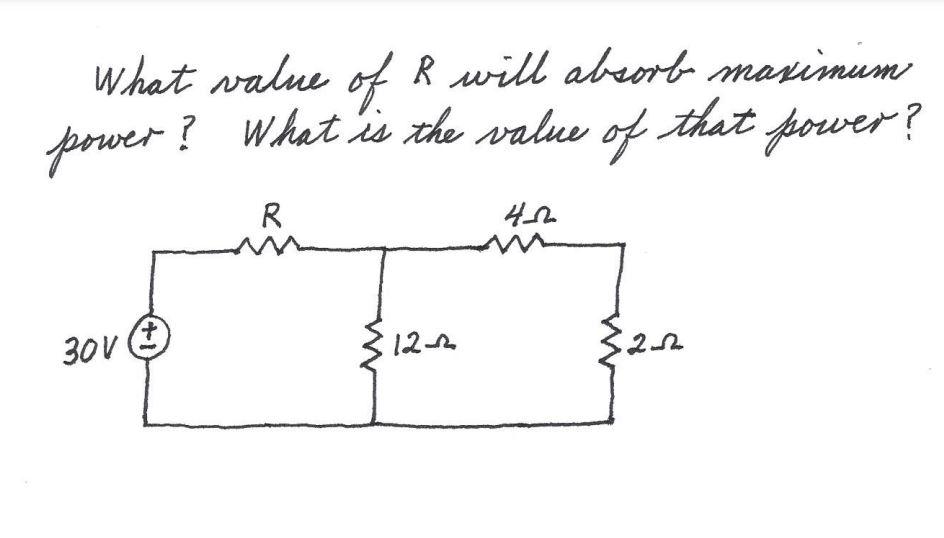 What value of R will absorb maximum
power? What is the value of that power?
R
4Ω
30V
+
-
12Ω
2Ω